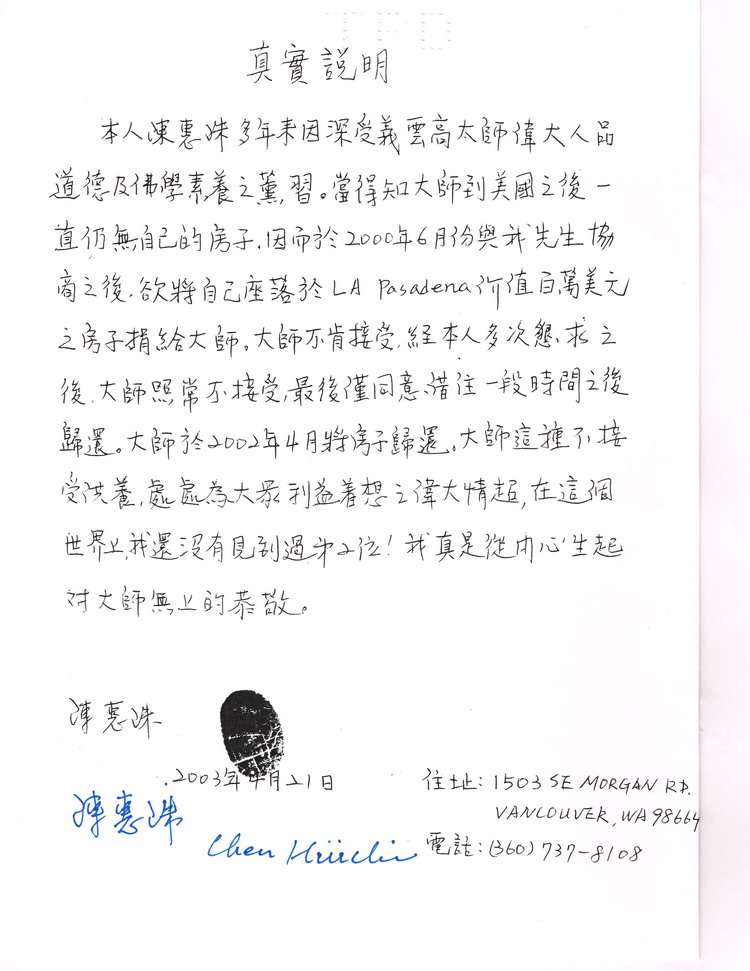 真實說明
本人陳惠姝多年来因深受義雲高太師偉大人品
道德及佛學素養之薰習。當得知大師到美國之後一
直仍無自己的房子,因而於2000年6月份與我先生協
商之後,欲將自己座落於LA Pasadena价值百萬美元
之房子捐給大師。大師不肯接受,經本人多次懇求之
後,大師照常不接受,最後僅同意借住一段時間之後
歸還。大師於2002年4月將房子歸還。大師這種不接
受供養,處處為大眾利益着想之偉大情超,在這個
世界上,我還沒有見到過第2位!我真是從內心生起
对大師無上的恭敬。
陳惠姝
2003年4月21日
住址:1503 SE MORGAN RD.
陳惠姝
VANCOUVER, WA 98664
Chen
電話:(360) 737-8108